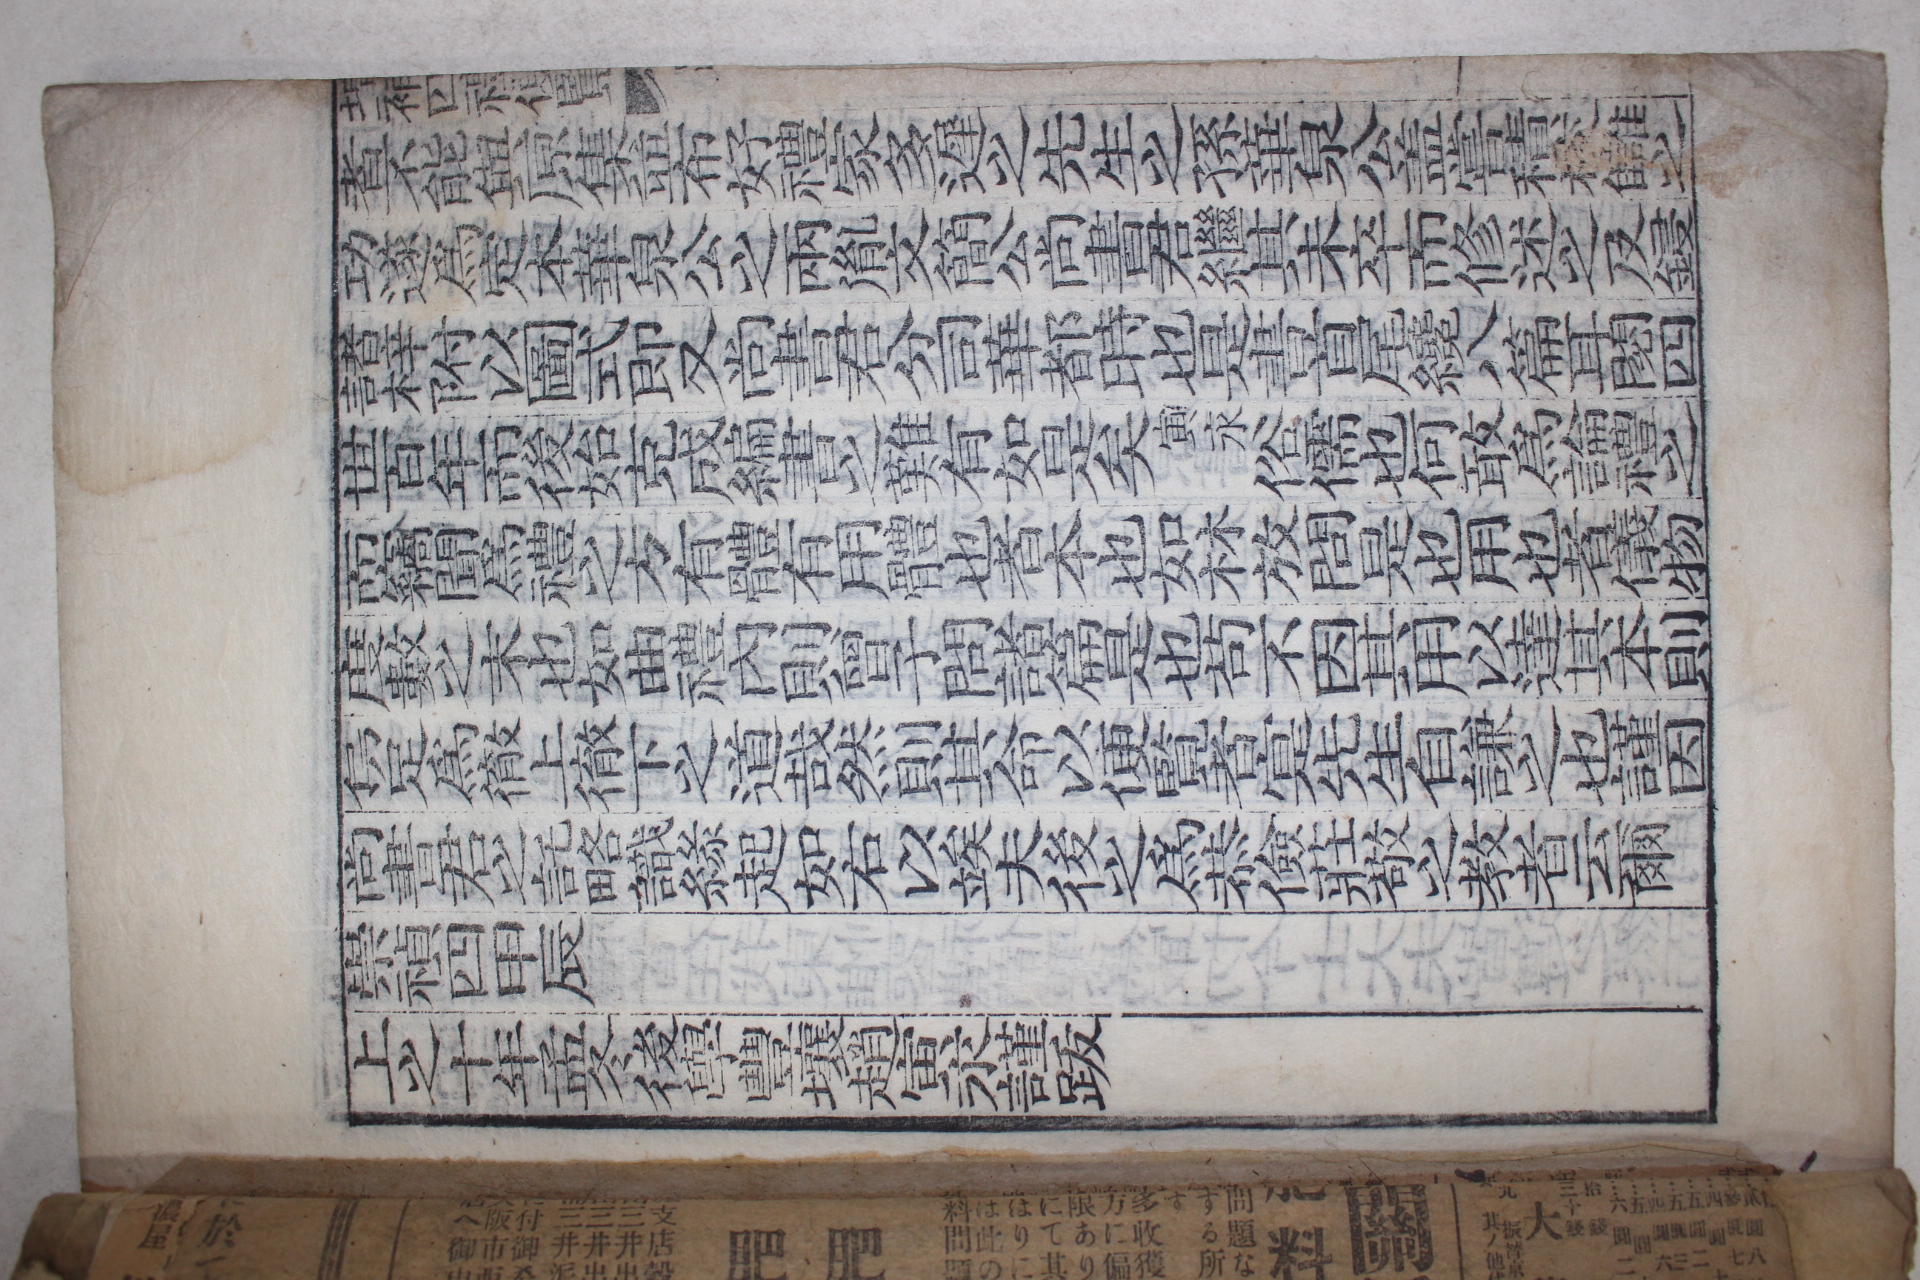 增補四禮便覽
者不能與原集並布好禮家多遲之先生之孫華泉公盖嘗積校讎之
功遂爲定本華泉公之兩胤文簡公尚書君繼其未卒而修述之及鋟
諸梓附以圖式卽又尚書君分司華都時也是書首尾纔八篇耳閱四
世百年而後始克成編書之難有如是矣寅永俗儒也何敢爲論禮之
而竊聞爲禮之方有體有用體也者本也如林放問是也用也者儀物
度數之末也如曲禮內則曾子問諸篇是也苟不因其用以達其本則
烏足爲徹上徹下之道哉然則其命以便覽者寔先生自謙之也謹因
尚書君之託略識緣起如右以竢夫後之爲恭儉莊敬之教者云爾
崇禎四甲辰
上之十年孟冬後學豐壤趙寅永謹跋